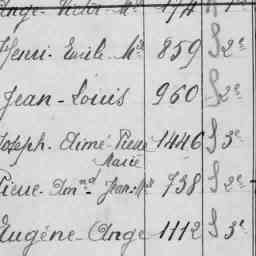 Ange - Victor - Mie 174
Henri - Emile Mie 859 S 2e
Jean - Louis 960 S 2e
Joseph - Aimé - Pierre 1446 S 3e
Marie
Pierre Amnd - Jean Mie 738 S 2e -
Eugène - Ange 1112 S 3e